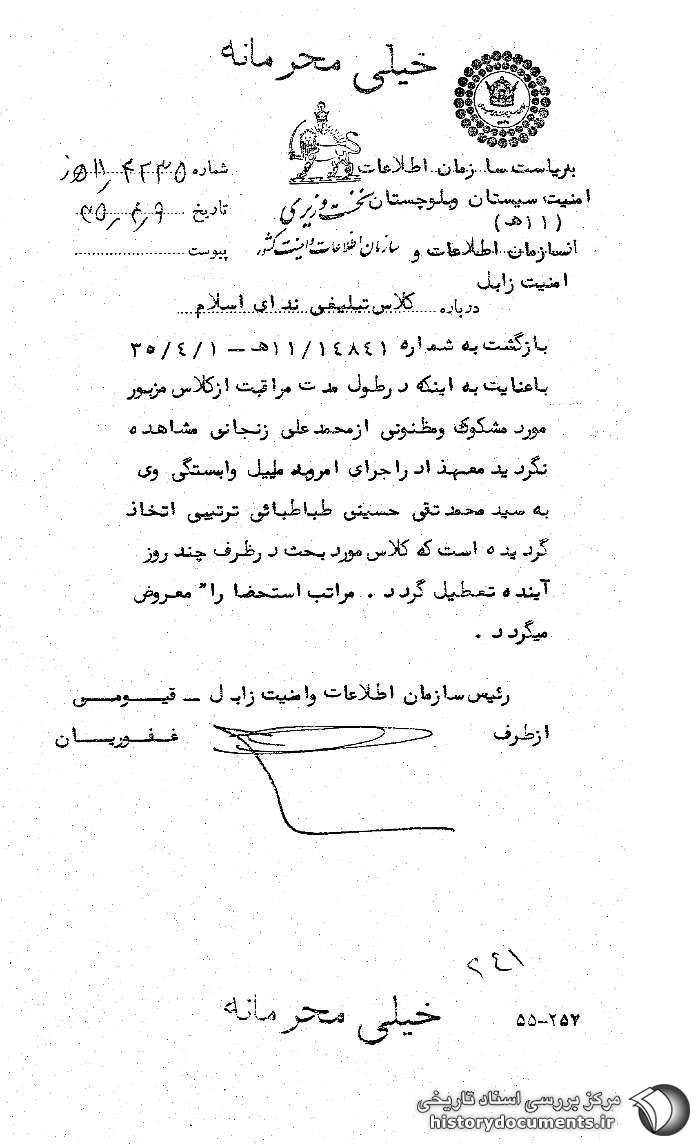 خیلی محرمانه
بریاست سازمان اطلاعات
امنیت سیستان و بلوچستان
(۱۱ هـ)
نخست وزیری
سازمان اطلاعات و امنیت کشور
شماره ۴۲۳۵
تاریخ ۳۵٫۴٫۹
پیوست
از سازمان اطلاعات و
امنیت زابل
درباره کلاس تبلیغی ندای اسلام
بازگشت به شماره ۱۱/۱۴۸۴۱هـ – ۳۵/۴/۱
باعنایت به اینکه درطول مدت مراقبت ازکلاس مزبور
مورد مشکوک ومظنونی ازمحمدعلی زنجانی مشاهده
نگردید معهذا در اجرای امریه بدلیل وابستگی وی
به سید محمد تقی حسینی طباطبائی ترتیبی اتخاذ
گردیده است که کلاس مورد بحث درظرف چند روز
آینده تعطیل گردد . مراتب استحضارا" معروض
میگردد .
رئیس سازمان اطلاعات وامنیت زابل – قیومی
ازطرف غفوریان
۲۴۱
خیلی محرمانه
۵۵-۲۵۷
مرکز بررسی اسناد تاریخی
historydocuments.ir